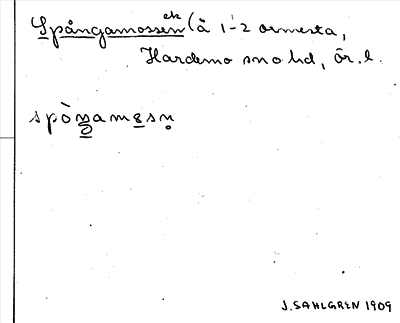 Spångamossen ek (å 1-2 ormesta,
Hardemo sn o hd, Ör. l.
spòŋamɛsn̥
J. SAHLGREN 1909